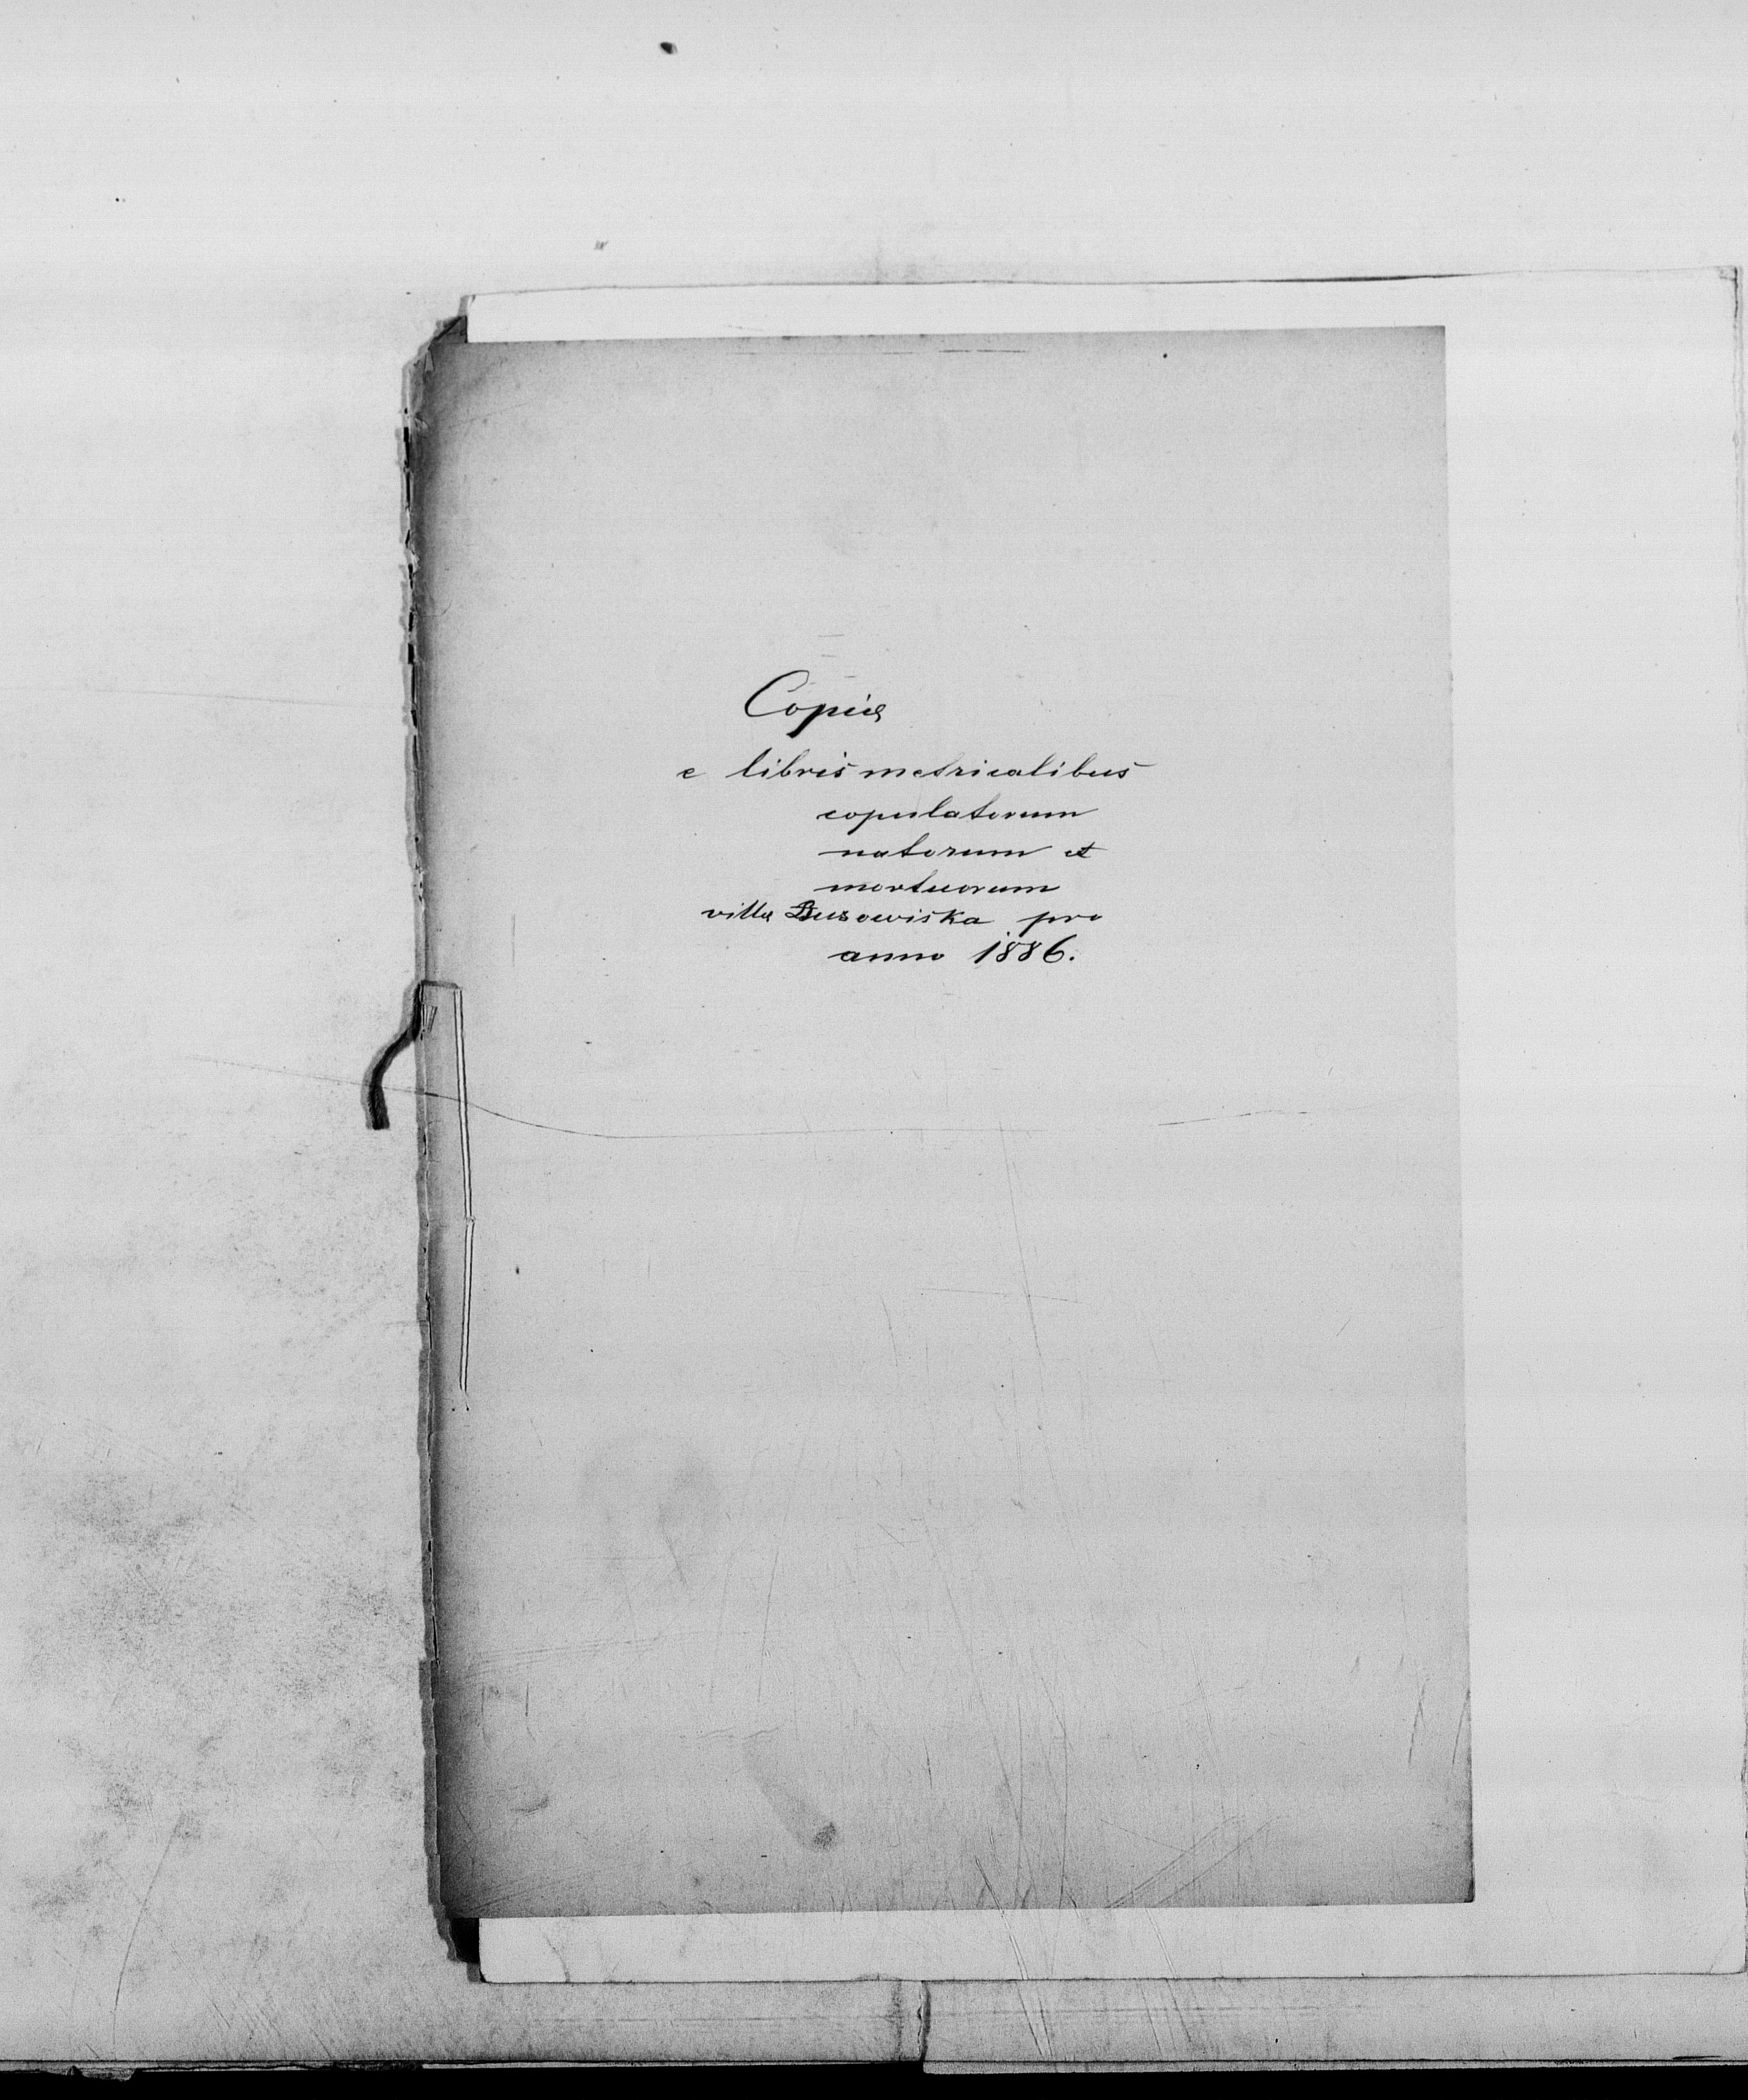 Copia
e libris metricalibus
copulatorum
natorum et
mortuorum
villæ Busowiska pro
anno 1886.